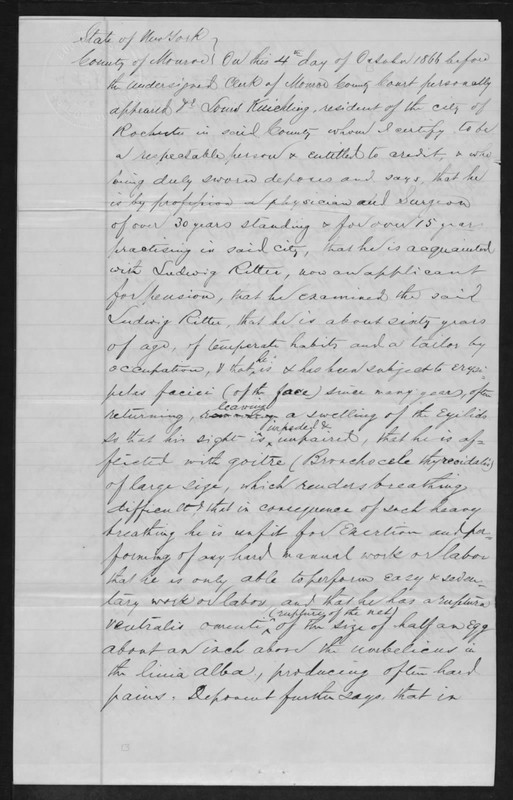 State of New York }
County of Monroe } On this 4th day of October 1866 before
the undersigned Clerk of Monroe County Court personally
appeared Dr Louis Kuichling, resident of the city of
Rochester in said County whom I certify to be
a respectable person & entitled to credit, & who
being duly sworn deposes and says, that he
is by profession a physician and Surgeon
of over 30 years standing & for over 15 years
practising in said city, that he is acquainted
with Ludwig Ritter, now an applicant
for pension, that he examined the said
Ludwig Ritter, that he is about sixty years
of age, of temperate habits and a tailor by
occupation, & that he is & has been subject to erysi-
pelas faciei (of the face) since many years, often
returning, leaving a swelling of the Eyelids
so that his sight is impeded & impaired, that he is af-
fected with goitre (Bronchocele thyreoidalis)
of large size, which renders breathing
difficult & that in consequence of such heavy
breathing he is unfit for Exertion and per-
forming of any hard manual work or labor
that he is only able to perform easy & seden-
tary work or labor, and that he has a ruptura
ventralis omenti (rupture of the net) of the size of half an Egg
about an inch above the umbelicus in
the linia alba, producing often hard
pains. Deponent further says that in
13